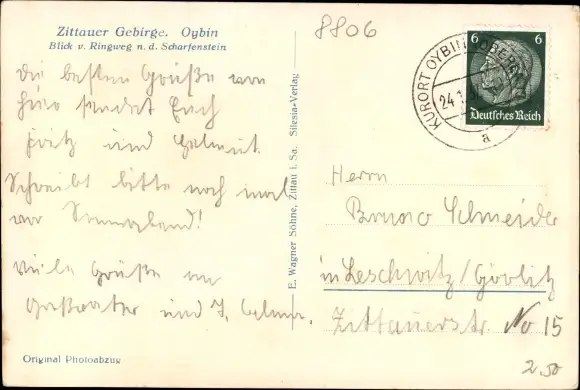 Zittauer Gebirge. Oybin
Blick v. Ringweg n. d. Scharfenstein
8806
Die besten Grüße von
hier sendet Euch
Fritz und Helmut.
Schreibt bitte noch mal
vor Sonnabend!
Viele Grüße an
Großvater und
Original Photoabzug
E. Wagner Söhne, Zittau i. Sa. Silesia-Verlag
6 6
Deutsches Reich
KURORT OYBIN
24.1
a
Herrn
Bruno Schneider
in Leschwitz/Görlitz
Zittauerstr. No 15
2.50